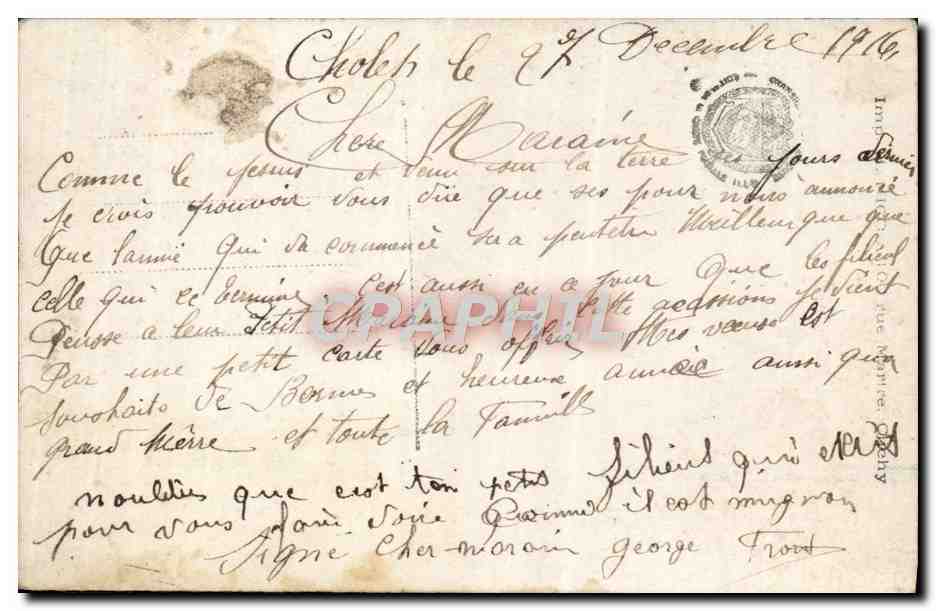 Cholet le 27 Decembre 1916
Chere Maraine
Comme le jesus et venu sur la terre ses jours dernier
je crois pouvoir vous dire que ses pour nous annoncé
Que lanné qui va commencé sera peutetre Meilleur que que
celle qui ce termine Cest aussi en ce jour Que les filieul
Pensse a leur Petit Maraine dans cette acassions je vient
Par une petit carte vous offrir Mes veuse est
souhaits de Bonnes et heureuse année aussi qua
grand Mèrre et toute la Famille
noublies que cest ton petit filieul qui ecrit
pour vous faire voire il est mignon
Signé Cher marain george
CPAPHIL